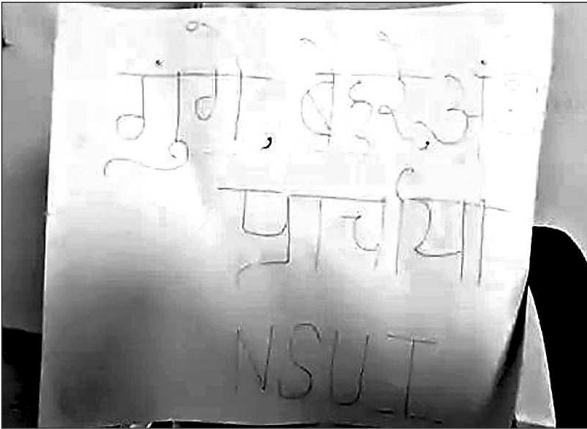 गूंगे, बेहरे,
प्राचार्या
NSUI